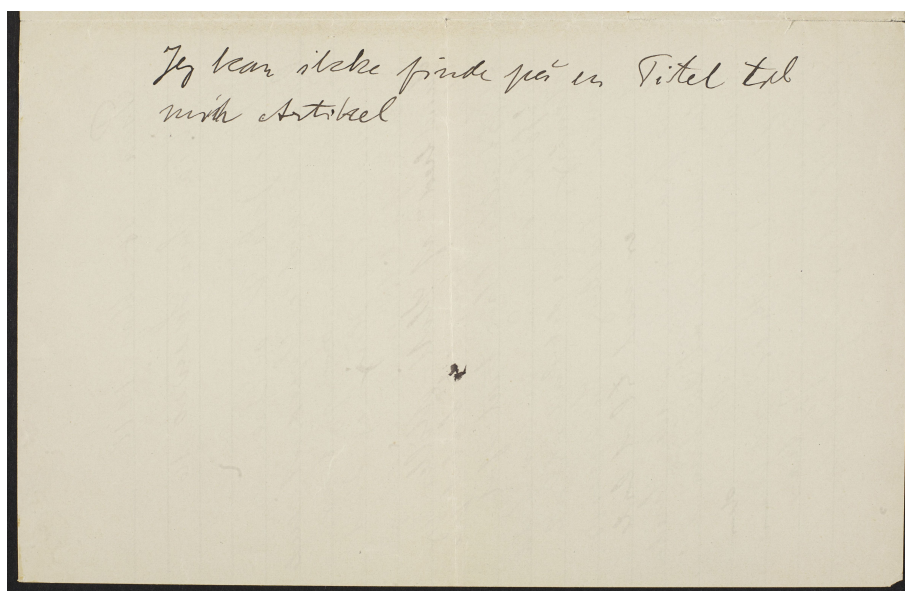 Jeg kan ikke finde på en Titel til
min Artikel